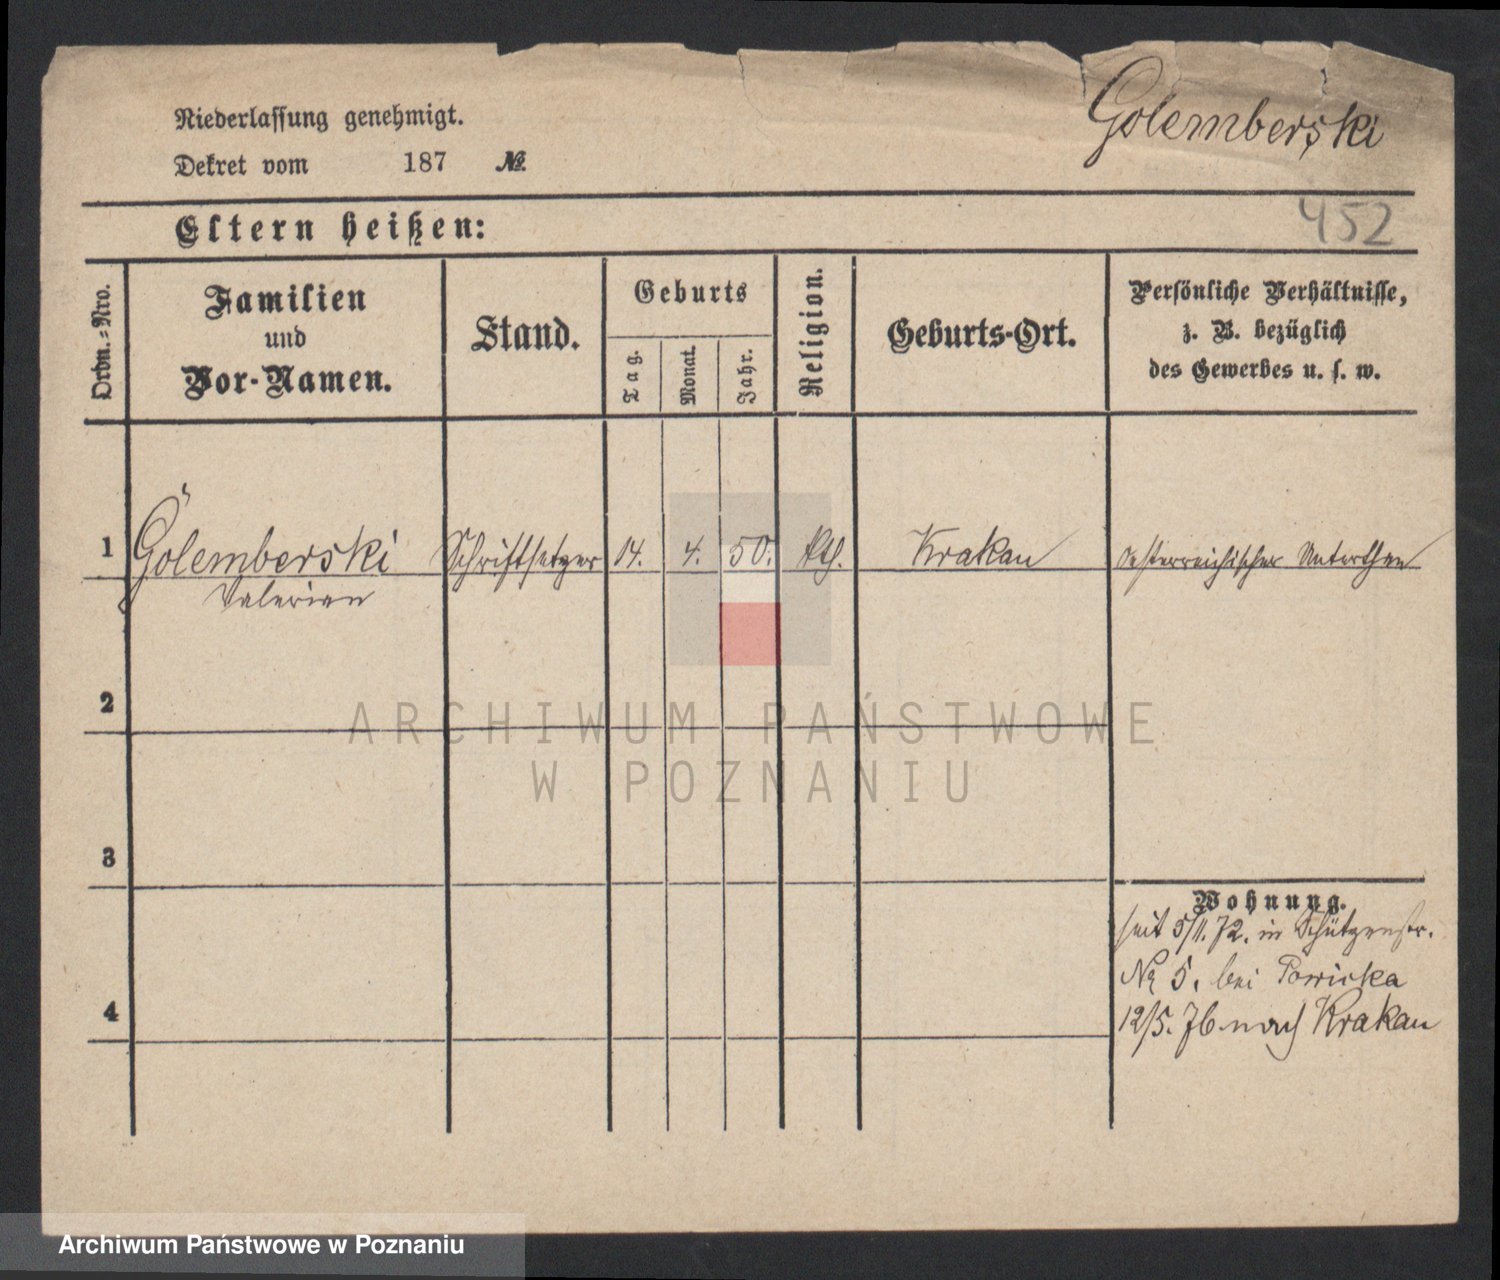 Niederlassung genehmigt.
Golemberski
Dekret vom 187 №
Eltern heißen:
452
Ordn.-Nro.
Familien
und
Vor-Namen.
Stand.
Geburts
Tag.
Monat.
Jahr.
Religion.
Geburts-Ort.
Persönliche Verhältnisse,
z. B. bezüglich
des Gewerbes u. s. w.
1 Golemberski Schriftsetzer 14. 4. 50. kth. Krakau oesterreichischer Unterthan
Valerian
2
ARCHIWUM PAŃSTWOWE
W POZNANIU
3
Wohnung.
seit 5/11. 72. in Schützenstr.
№ 5. bei
4
12/5. 76 nach Krakau
Archiwum Państwowe w Poznaniu